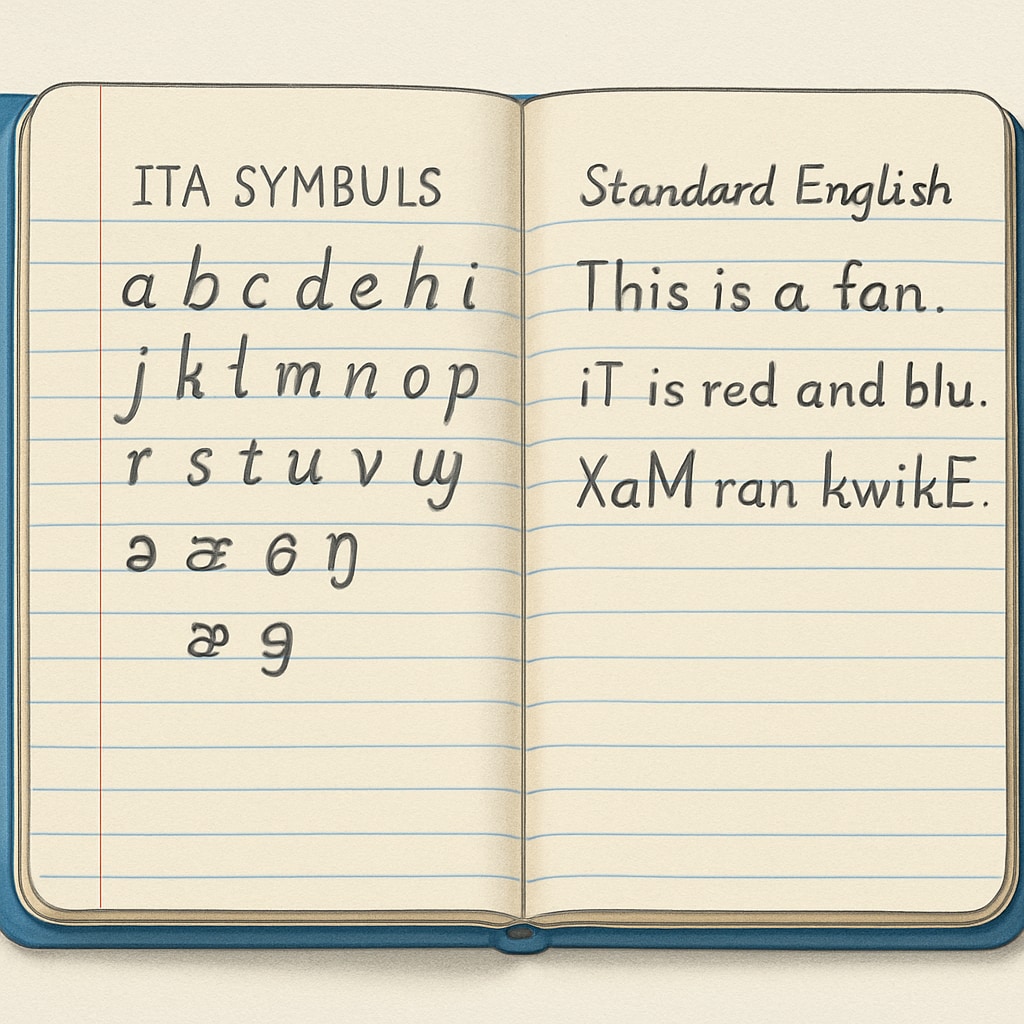 ITA SYMBULS
a b c d e h i
j k l m n o p
r s t u v ɰ
ə æ ɞ ŋ
æ g
Standard English
This is a fan.
iT is red and blu.
XaM ran kwikE.